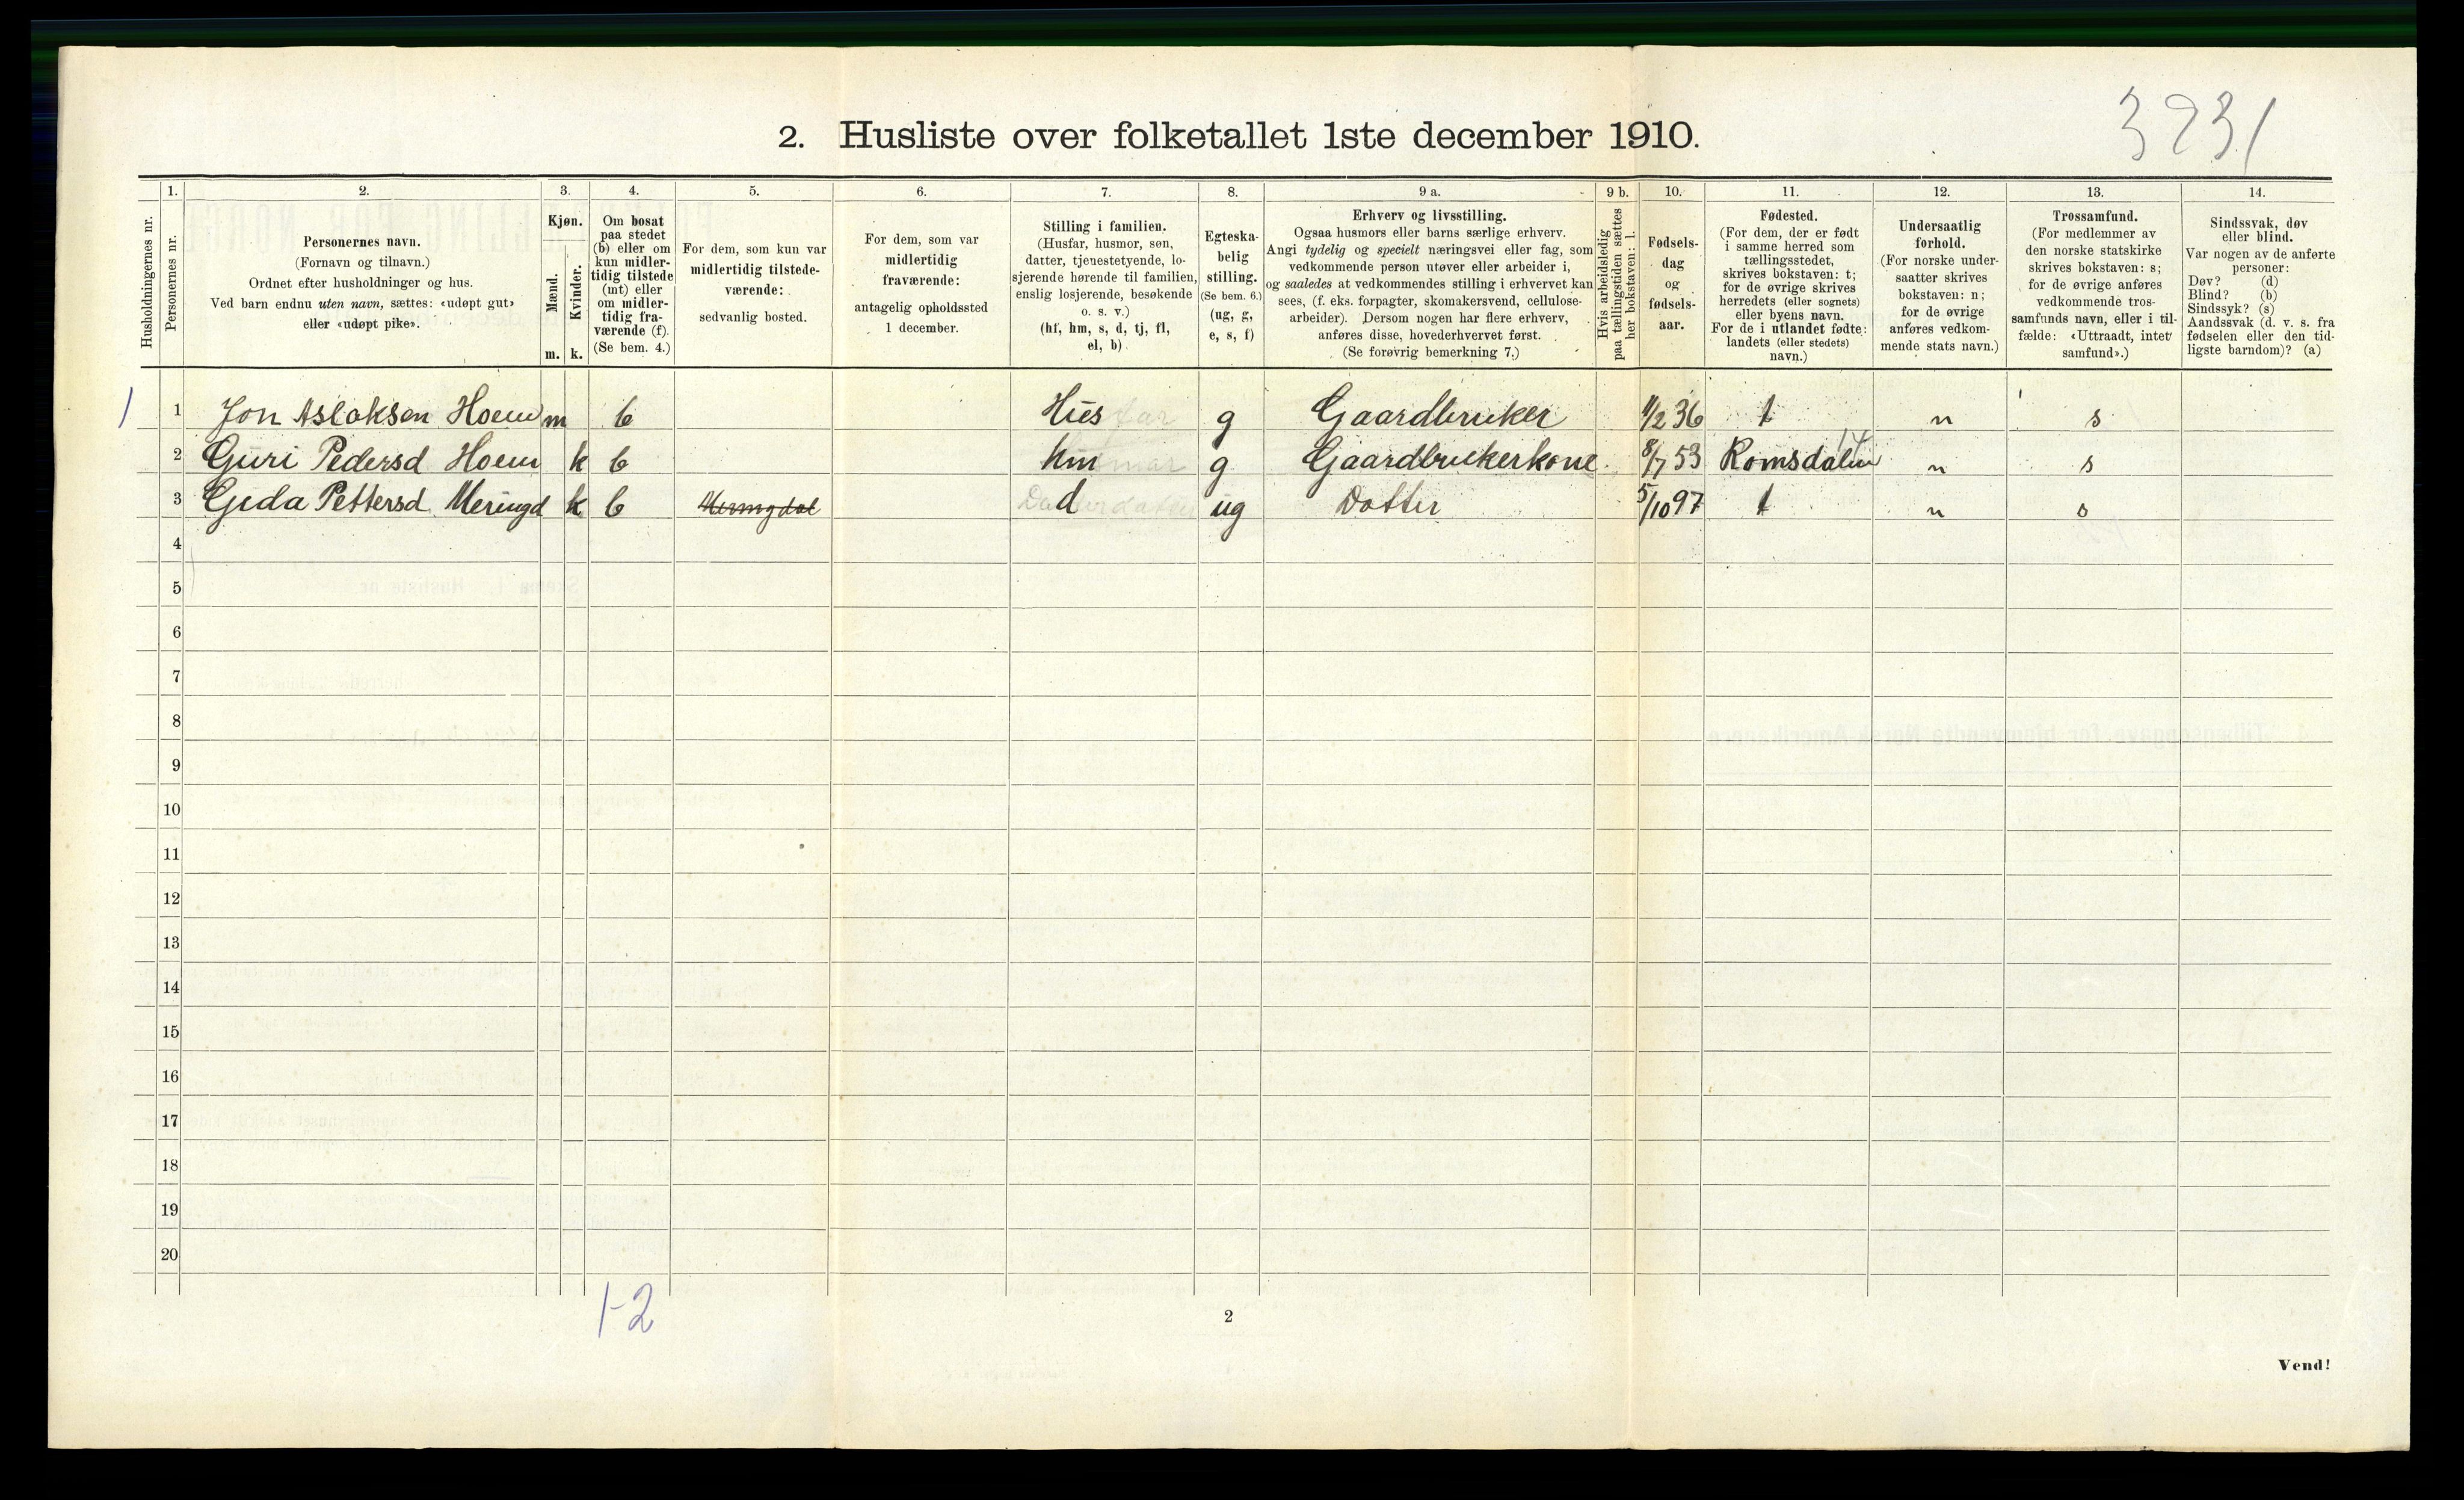 3231
2. Husliste over folketallet 1ste december 1910.
Husholdningernes nr.
1.
Personernes nr.
2.
Personernes navn.
(Fornavn og tilnavn.)
Ordnet efter husholdninger og hus.
Ved barn endnu uten navn, sættes: «udøpt gut»
eller «udøpt pike».
3.
Kjøn.
Mænd.
Kvinder.
m. k.
4.
Om bosat
paa stedet
(b) eller om
kun midler-
tidig tilstede
(mt) eller
om midler-
tidig fra-
værende (f).
(Se bem. 4.)
5.
For dem, som kun var
midlertidig tilstede-
værende:
sedvanlig bosted.
6.
For dem, som var
midlertidig
fraværende:
antagelig opholdssted
1 december.
7.
Stilling i familien.
(Husfar, husmor, søn,
datter, tjenestetyende, lo-
sjerende hørende til familien,
enslig losjerende, besøkende
o. s. v.)
(hf, hm, s, d, tj, fl,
el, b)
8.
Egteska-
belig
stilling.
(Se bem. 6.)
(ug, g,
e, s, f)
9 a.
Erhverv og livsstilling.
Ogsaa husmors eller barns særlige erhverv.
Angi tydelig og specielt næringsvei eller fag, som
vedkommende person utøver eller arbeider i,
og saaledes at vedkommendes stilling i erhvervet kan
sees, (f. eks. forpagter, skomakersvend, cellulose-
arbeider). Dersom nogen har flere erhverv,
anføres disse, hovederhvervet først.
(Se forøvrig bemerkning 7.)
9 b.
Hvis arbeidsledig
paa tællingstiden sættes
her bokstaven: l.
10.
Fødsels-
dag
og
fødsels-
aar.
11.
Fødested.
(For dem, der er født
i samme herred som
tællingsstedet,
skrives bokstaven: t;
for de øvrige skrives
herredets (eller sognets)
eller byens navn.
For de i utlandet fødte:
landets (eller stedets)
navn.)
12.
Undersaatlig
forhold.
(For norske under-
saatter skrives
bokstaven: n;
for de øvrige
anføres vedkom-
mende stats navn.)
13.
Trossamfund.
(For medlemmer av
den norske statskirke
skrives bokstaven: s;
for de øvrige anføres
vedkommende tros-
samfunds navn, eller i til-
fælde: «Uttraadt, intet
samfund».)
14.
Sindssvak, døv
eller blind.
Var nogen av de anførte
personer:
Døv? (d)
Blind? (b)
Sindssyk? (s)
Aandssvak (d. v. s. fra
fødselen eller den tid-
ligste barndom)? (a)
1 1 Jon Aslaksen Hoem m b Husfar g Gaardbruker 11/2 36 t n s
2 Guri Pedersd Hoem k b hm g Gaardbrukerkone 8/7 53 Romsdalen 14 n s
3 Gida Pettersd Meringd k b d ug Datter 5/10 97 t n s
4
5
6
7
8
9
10
11
12
13
14
15
16
17
18
19
20
1-2
2
Vend!